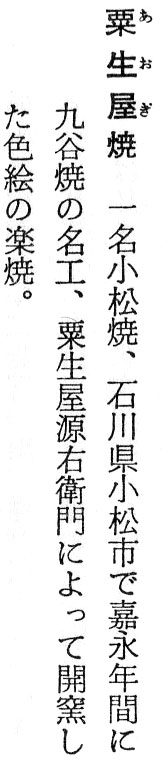 粟生屋焼　一名小松焼、石川県小松市で嘉永年間に
九谷焼の名工、粟生屋源右衛門によって開窯し
た色絵の楽焼。
あおぎ